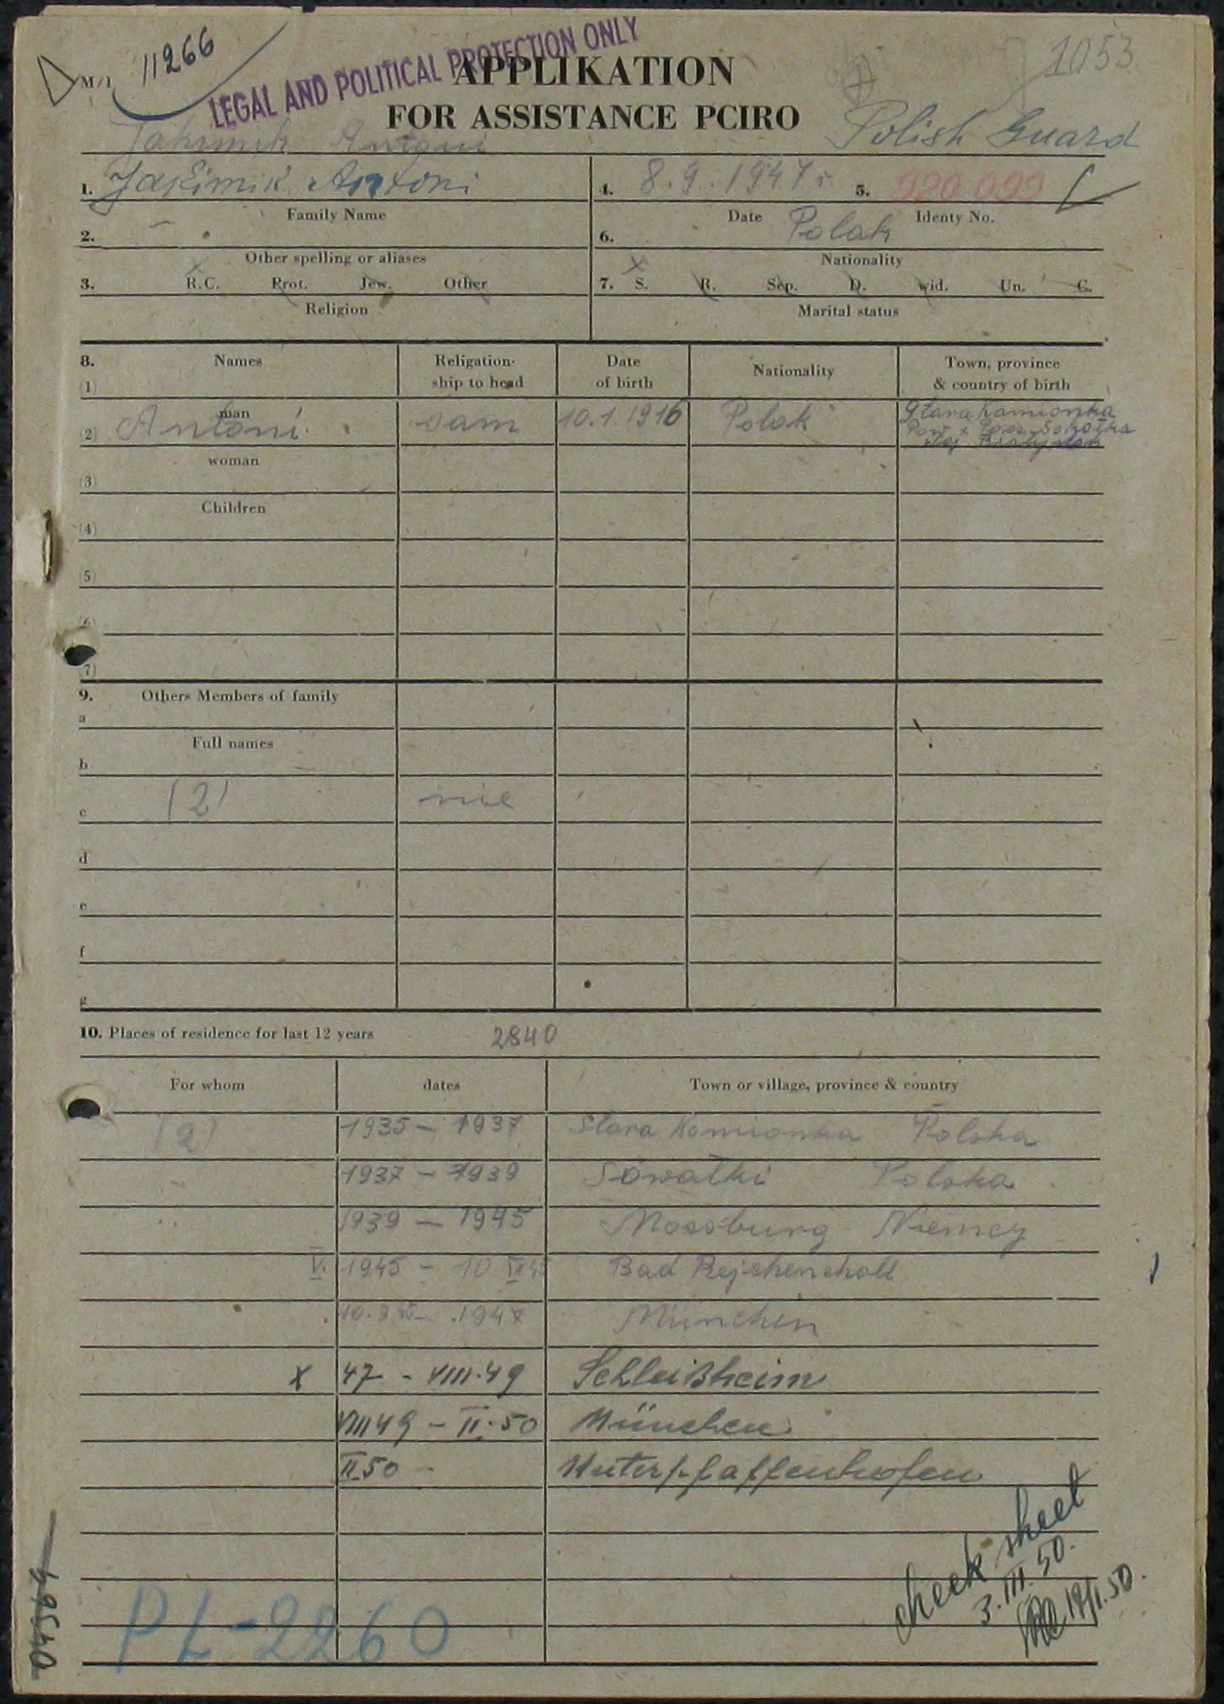 M/1 11266
LEGAL AND POLITICAL PROTECTION ONLY
1053
APPLIKATION
FOR ASSISTANCE PCIRO
Polish Guard
Jakimik Antoni
1. Jakimik Antoni
Family Name
4. 8.9.1947 r. 5. 920 099
Date Identy No.
2. -
Other spelling or aliases
6. Polak
Nationality
3. R.C. Prot. Jew. Other
Religion
7. S. R. Sep. D. wid. Un. C.
Marital status
8. Names
Religation-
ship to head
Date
of birth
Nationality
Town, province
& country of birth
(1)
man
(2) Antoni sam 10.1.1916 Polak Stara Kamionka
Sokółka
woman
(3)
Children
(4)
(5)
(6)
(7)
9. Others Members of family
a
Full names
b
c (2) nie
d
e
f
g
10. Places of residence for last 12 years 2840
For whom dates Town or village, province & country
(2) 1935 - 1937 Stara Kamionka Polska
1937 - 1939 Sówałki Polska
1939 - 1945 Moosburg Niemcy
V. 1945 - 10 Bad Rejchenchall
1947 München
X 47 - VIII.49 Schleißheim
VIII 49 - II.50 München
II 50 - Unterpfaffenhofen
check sheet
3.III.50.
PL-2260